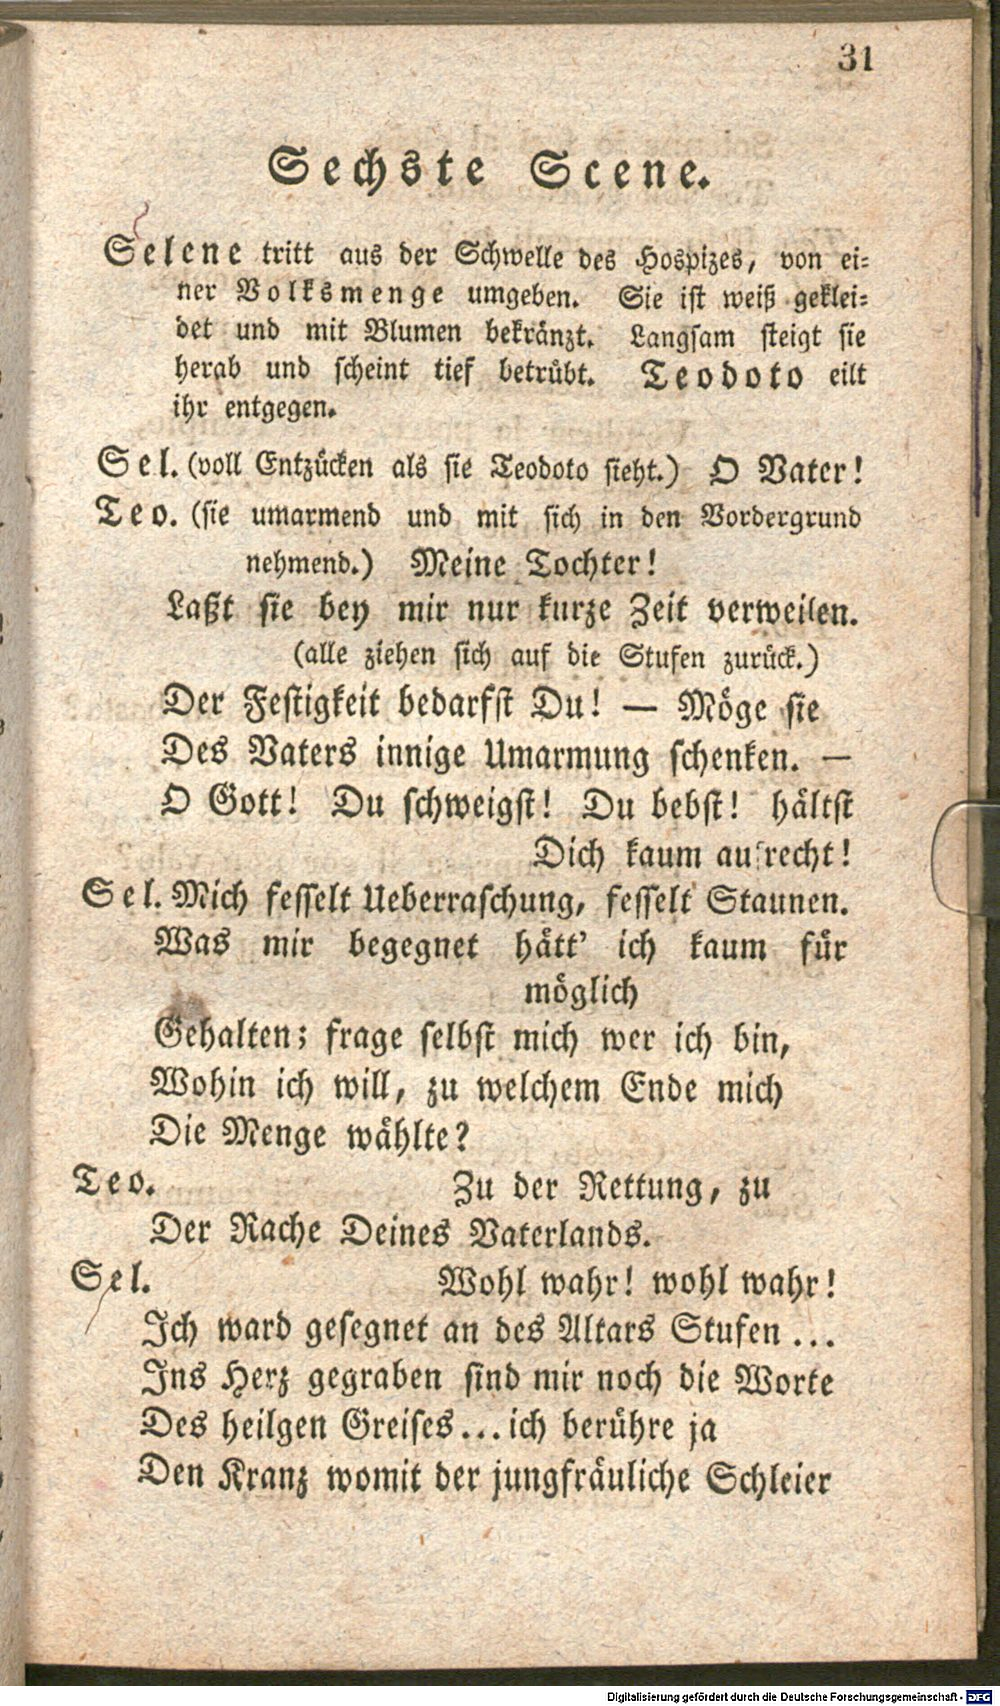 31
Sechste Scene.
Selene tritt aus der Schwelle des Hospizes, von ei-
ner Volksmenge umgeben. Sie ist weiß geklei-
det und mit Blumen bekränzt. Langsam steigt sie
herab und scheint tief betrübt. Teodoto eilt
ihr entgegen.
Sel. (voll Entzücken als sie Teodoto sieht.) O Vater!
Teo. (sie umarmend und mit sich in den Vordergrund
nehmend.) Meine Tochter!
Laßt sie bey mir nur kurze Zeit verweilen.
(alle ziehen sich auf die Stufen zurück.)
Der Festigkeit bedarfst Du! — Möge sie
Des Vaters innige Umarmung schenken. —
O Gott! Du schweigst! Du bebst! hältst
Dich kaum aufrecht!
Sel. Mich fesselt Ueberraschung, fesselt Staunen.
Was mir begegnet hätt' ich kaum für
möglich
Gehalten; frage selbst mich wer ich bin,
Wohin ich will, zu welchem Ende mich
Die Menge wählte?
Teo. Zu der Rettung, zu
Der Rache Deines Vaterlands.
Sel. Wohl wahr! wohl wahr!
Ich ward gesegnet an des Altars Stufen ...
Ins Herz gegraben sind mir noch die Worte
Des heilgen Greises ... ich berühre ja
Den Kranz womit der jungfräuliche Schleier
Digitalisierung gefördert durch die Deutsche Forschungsgemeinschaft - DFG